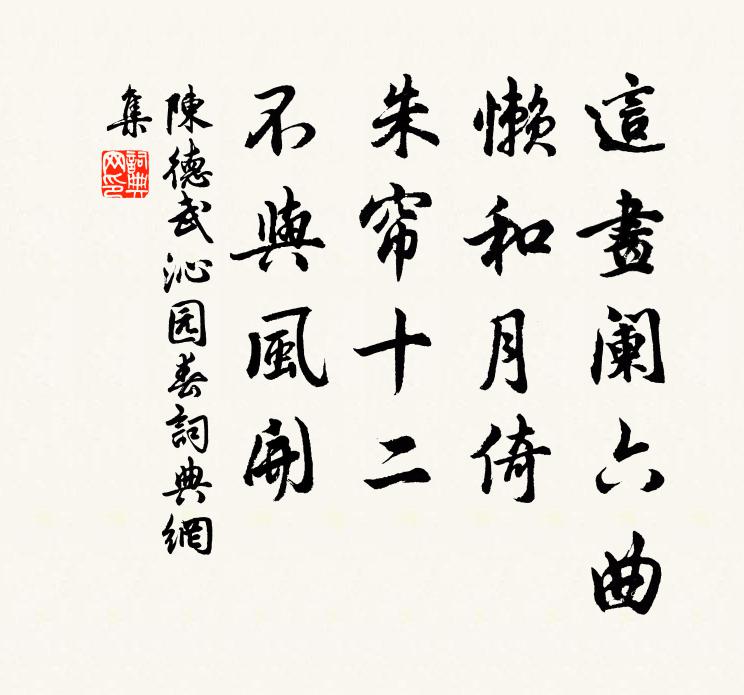 這畫阑六曲
懒和月倚
朱帘十二
不與風開
陳德武沁园春詞典網
集
詞典
网印